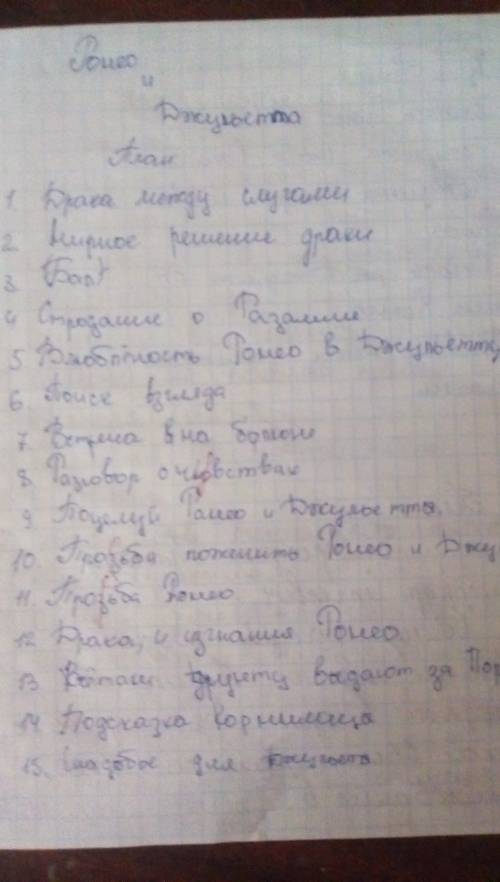 Ромео
и
Джульетта
План
1. Драка между слугами
2. Мирное решение драки
3 Бал
4 Стродание о Разалине
5 Влюблённость Ромео в Джульетту
6 Поиск взгляда
7 Встреча на болконе
8 Разговор о чювствах
9 Поцелуй Ромео и Джульетты.
10. Прозьба поженить Ромео и Джу
11. Прозьба Ромео
12 Драка, и изгнания Ромео.
13 выдают за Пор
14 Подсказка кормилица
15. для